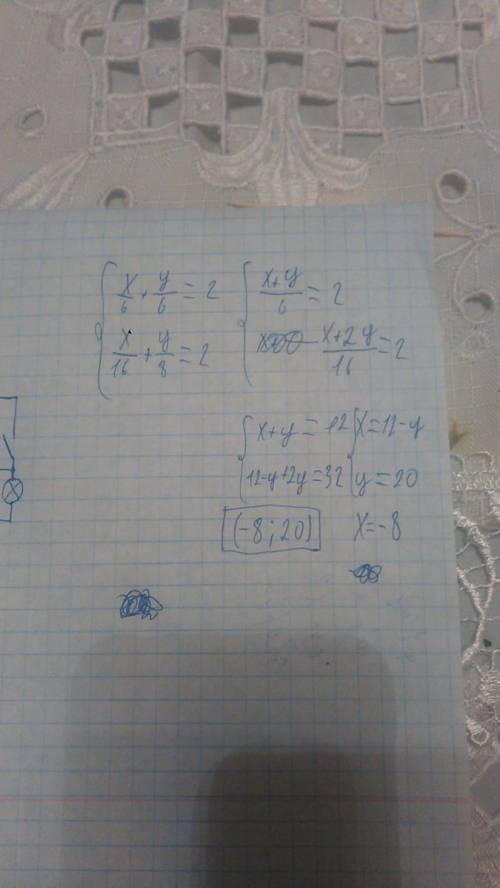 x/6 + y/6 = 2
x/16 + y/8 = 2
(x+y)/6 = 2
(x+2y)/16 = 2
x+y=12
12-y+2y=32
x=12-y
y=20
(-8; 20)
x=-8